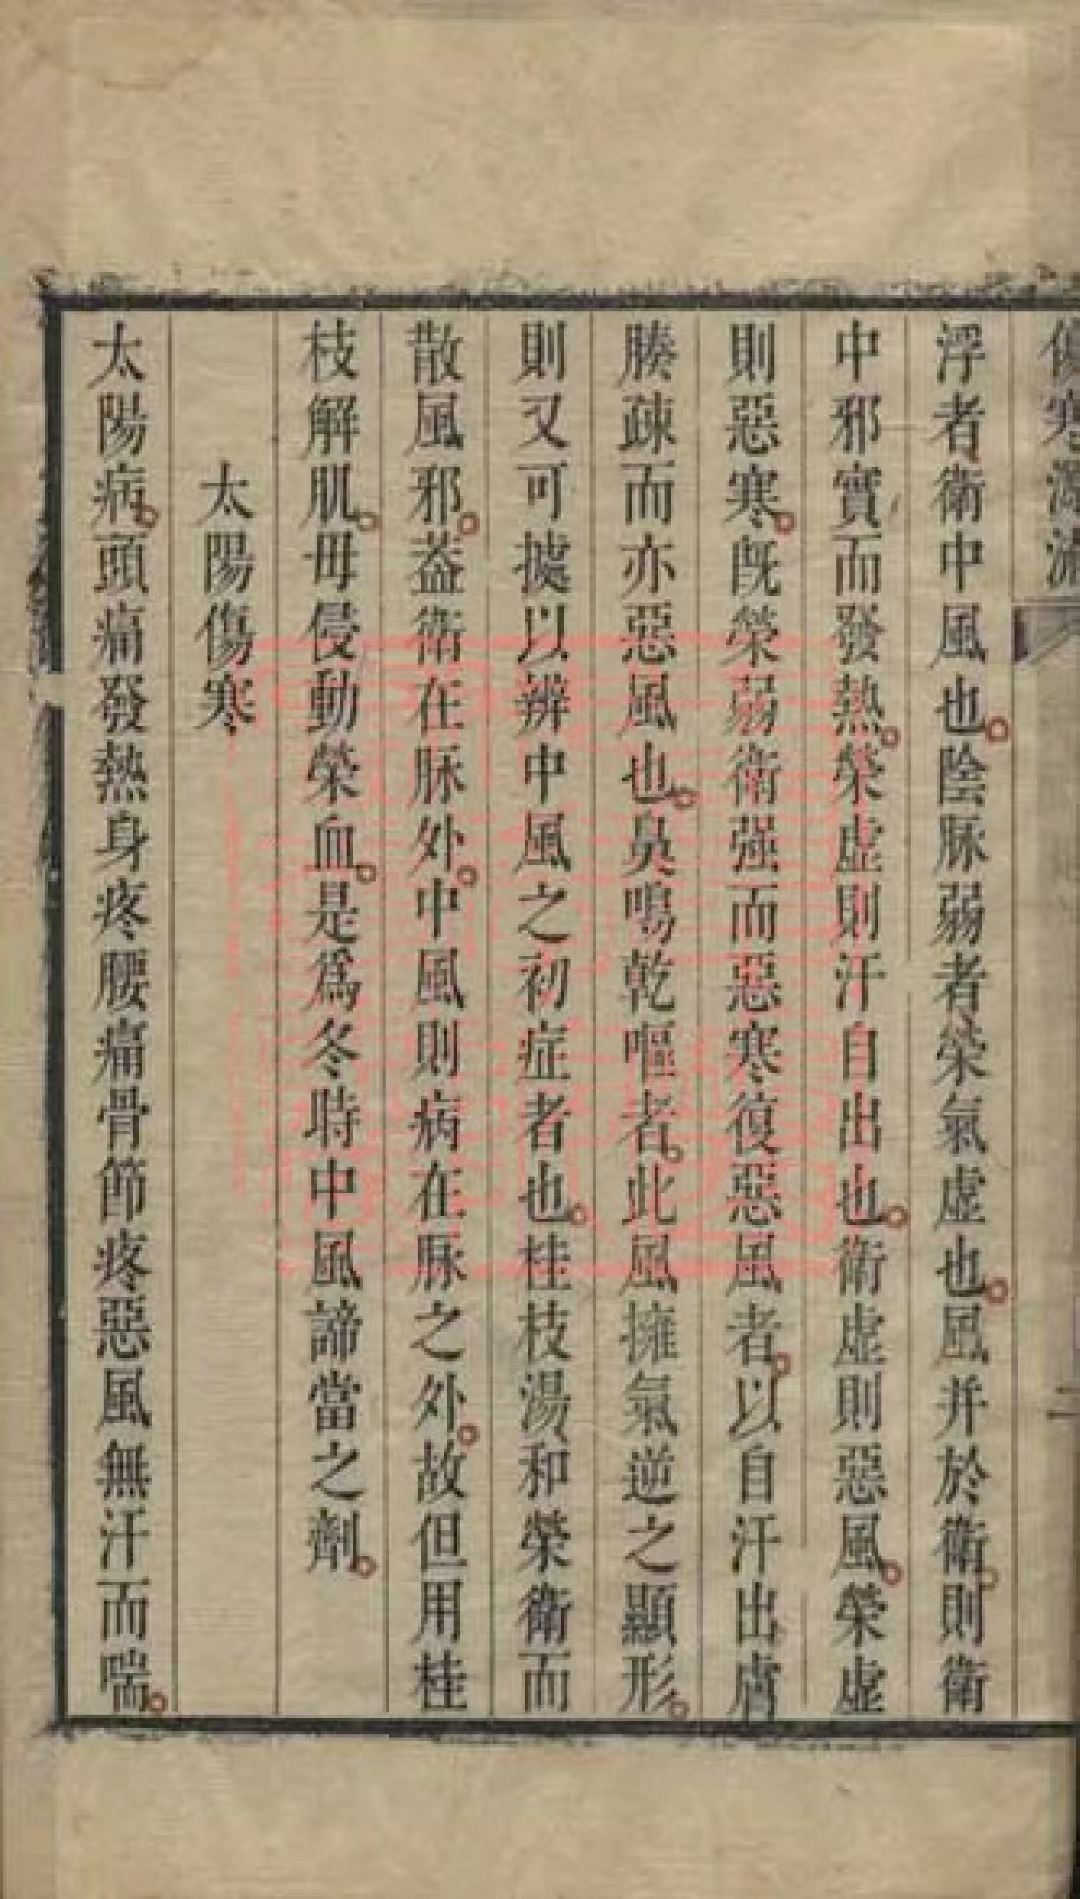 傷寒
浮者衛中風也陰脉弱者榮氣虛也風并於衛則衛
中邪實而發熱榮虛則汗自出也衛虛則惡風榮虛
則惡寒旣榮弱衛强而惡寒復惡風者以自汗出膚
腠疎而亦惡風也鼻鳴乾嘔者此風擁氣逆之顯形
則又可據以辨中風之初症者也桂枝湯和榮衛而
散風邪葢衛在脉外中風則病在脉之外故但用桂
枝解肌毋侵動榮血是爲冬時中風諦當之劑
太陽傷寒
太陽病頭痛發熱身疼腰痛骨節疼惡風無汗而喘